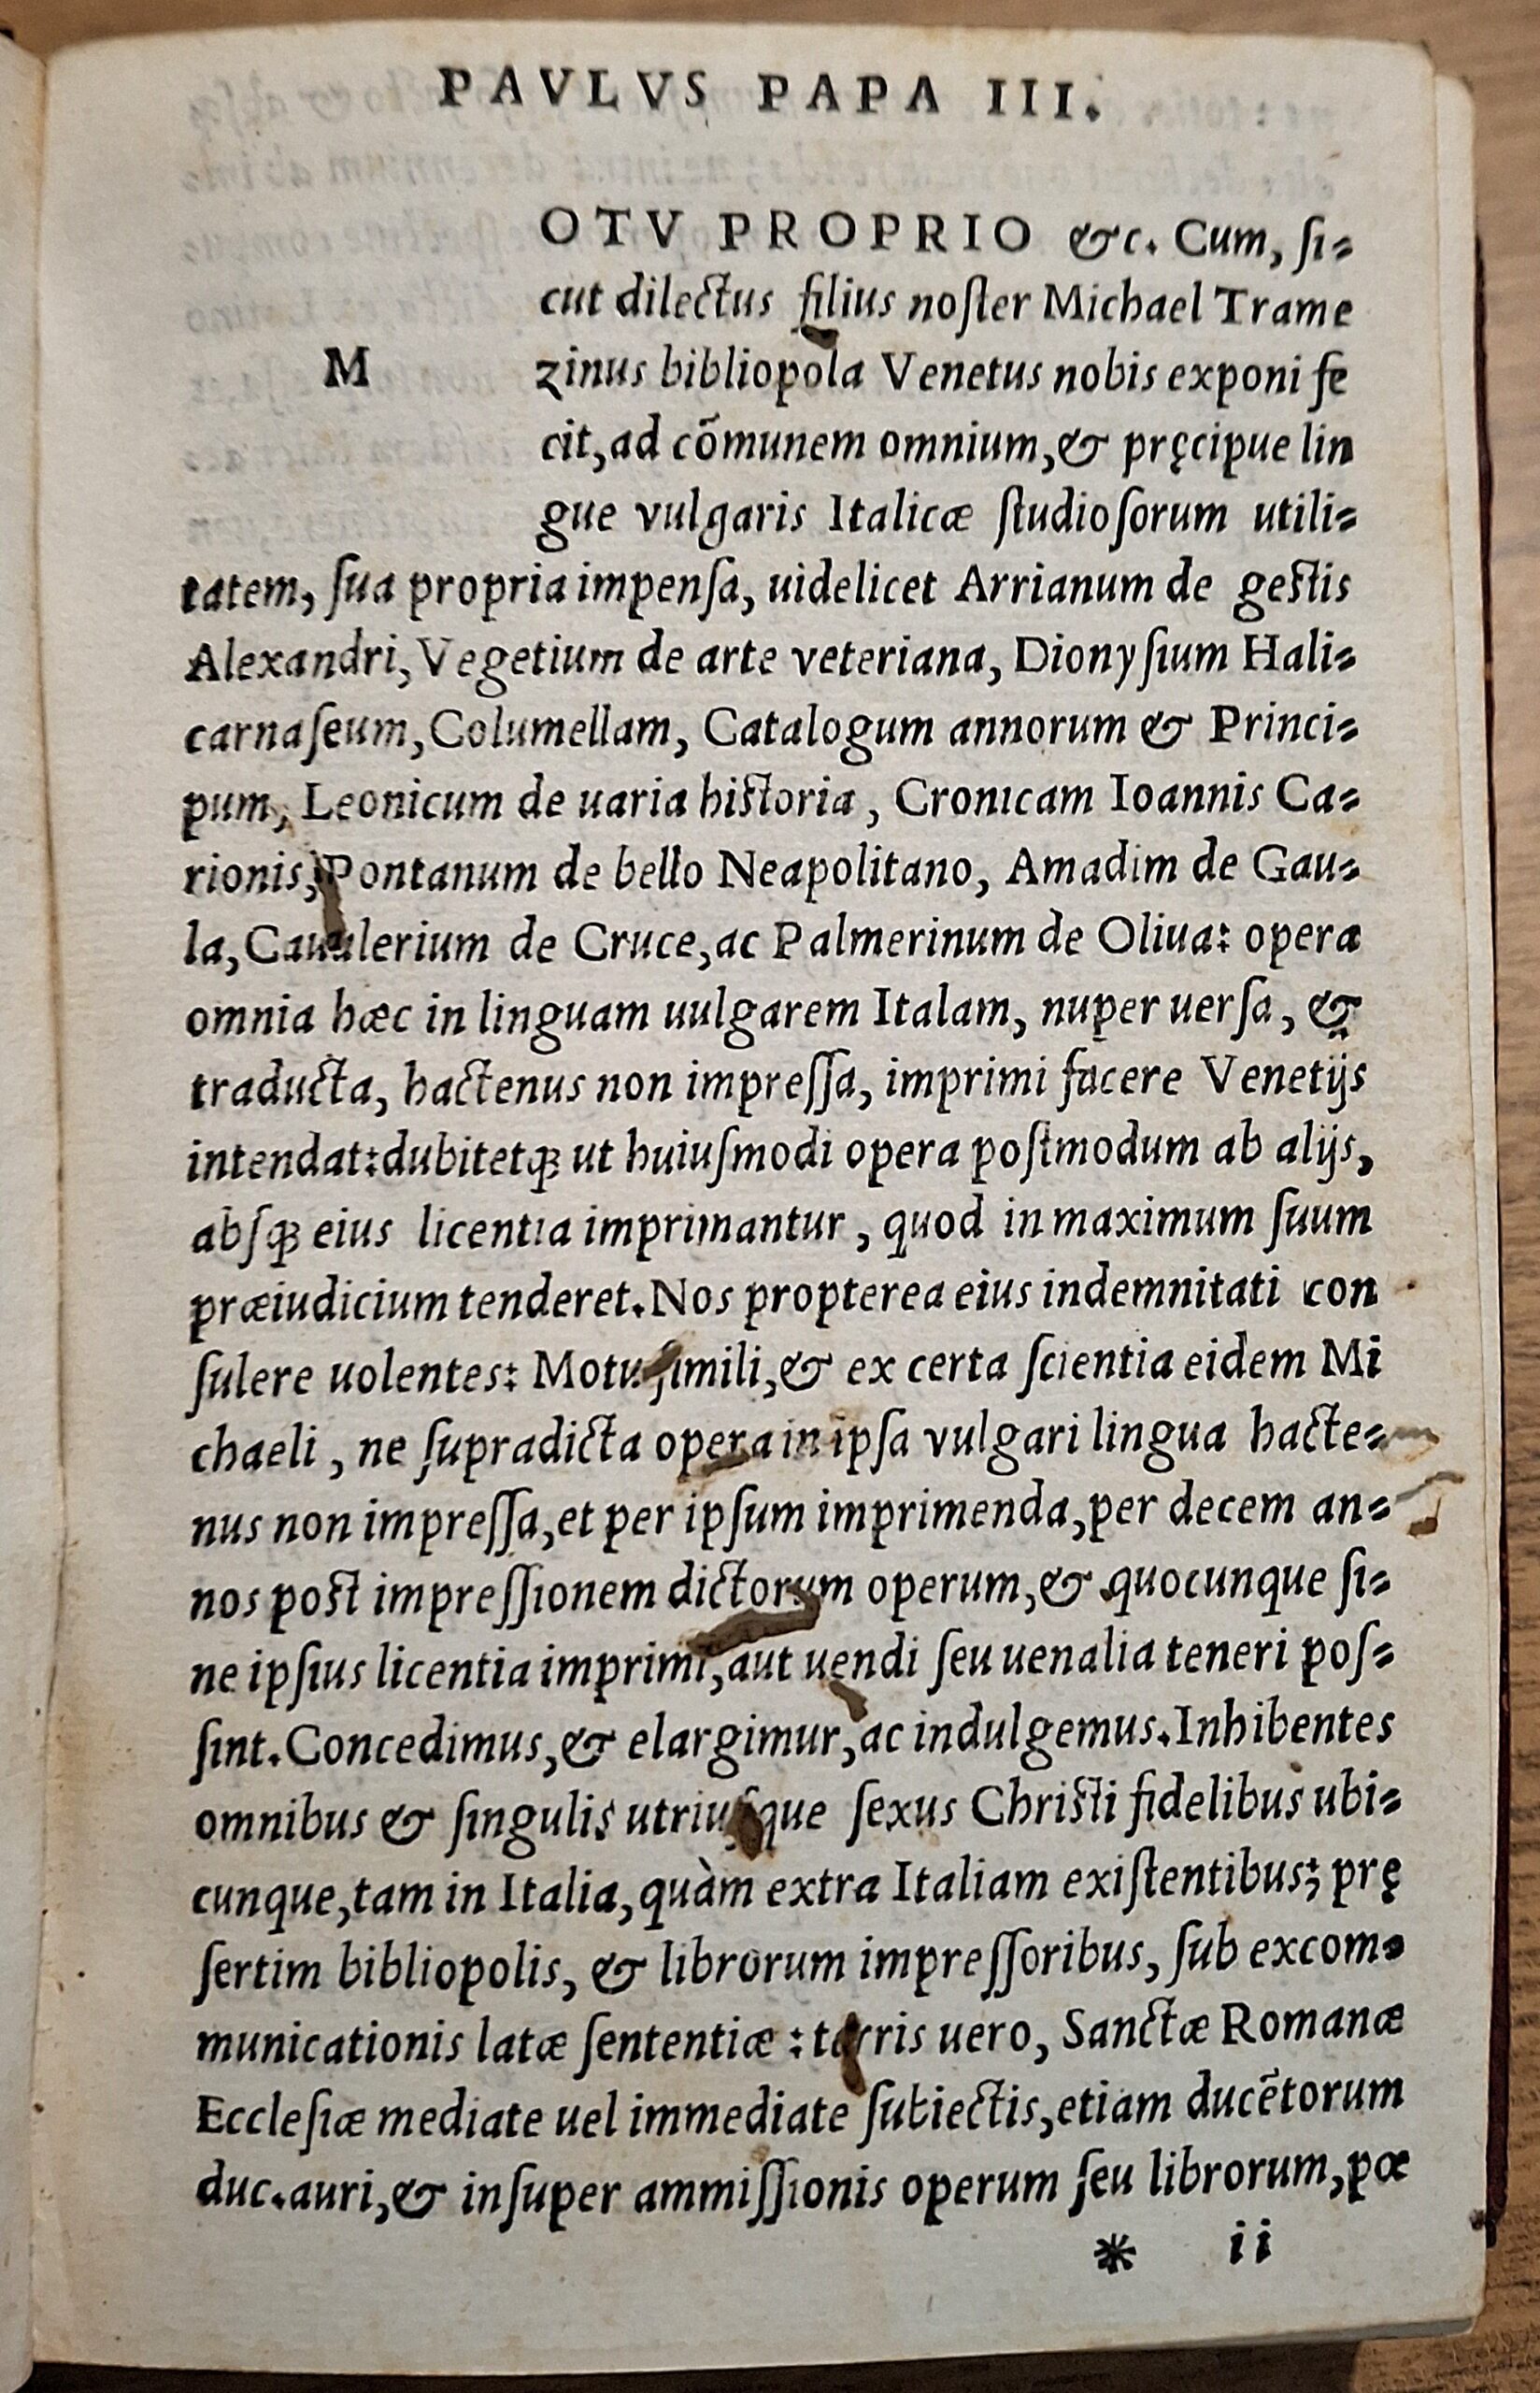 PAVLVS PAPA III.
M
OTV PROPRIO &c. Cum, ſi⸗
cut dilectus filius noſter Michael Trame
zinus bibliopola Venetus nobis exponi fe
cit, ad cõmunem omnium, & pręcipue lin
gue vulgaris Italicæ ſtudioſorum utili⸗
tatem, ſua propria impenſa, uidelicet Arrianum de geſtis
Alexandri, Vegetium de arte veteriana, Dionyſium Hali⸗
carnaſeum, Columellam, Catalogum annorum & Princi⸗
pum, Leonicum de uaria hiſtoria, Cronicam Ioannis Ca⸗
rionis, Pontanum de bello Neapolitano, Amadim de Gau⸗
la, Caualerium de Cruce, ac Palmerinum de Oliua: opera
omnia hæc in linguam uulgarem Italam, nuper uerſa, &
traducta, hactenus non impreſſa, imprimi facere Venetijs
intendat: dubitetqꝫ ut huiuſmodi opera poſtmodum ab alijs,
abſqꝫ eius licentia imprimantur, quod in maximum ſuum
præiudicium tenderet. Nos propterea eius indemnitati con
ſulere uolentes: Motu ſimili, & ex certa ſcientia eidem Mi
chaeli, ne ſupradicta opera in ipſa vulgari lingua hacte⸗
nus non impreſſa, et per ipſum imprimenda, per decem an⸗
nos poſt impreſſionem dictorum operum, & quocunque ſi⸗
ne ipſius licentia imprimi, aut uendi ſeu uenalia teneri poſ⸗
ſint. Concedimus, & elargimur, ac indulgemus. Inhibentes
omnibus & ſingulis utriuſque ſexus Chriſti fidelibus ubi⸗
cunque, tam in Italia, quàm extra Italiam exiſtentibus; prę
ſertim bibliopolis, & librorum impreſſoribus, ſub excom⸗
municationis latæ ſententiæ: terris uero, Sanctæ Romanæ
Eccleſiæ mediate uel immediate ſubiectis, etiam ducẽtorum
duc. auri, & inſuper ammiſſionis operum ſeu librorum, pœ
* ii